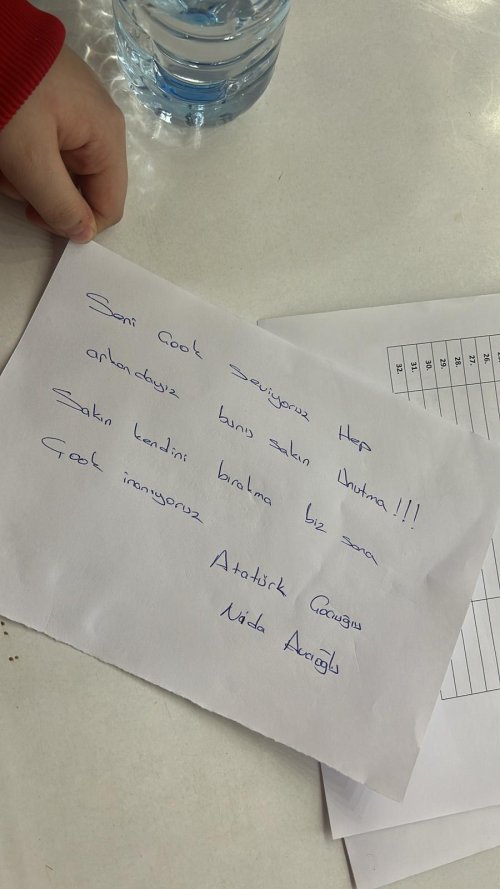 Seni Çook seviyoruz Hep
arkandayız bunu sakın Unutma!!!
Sakın kendini bırakma biz sana
Çook inanıyoruz
Atatürk Çocuğu
Nida Avcıoğlu
26.
27.
28.
29.
30.
31.
32.